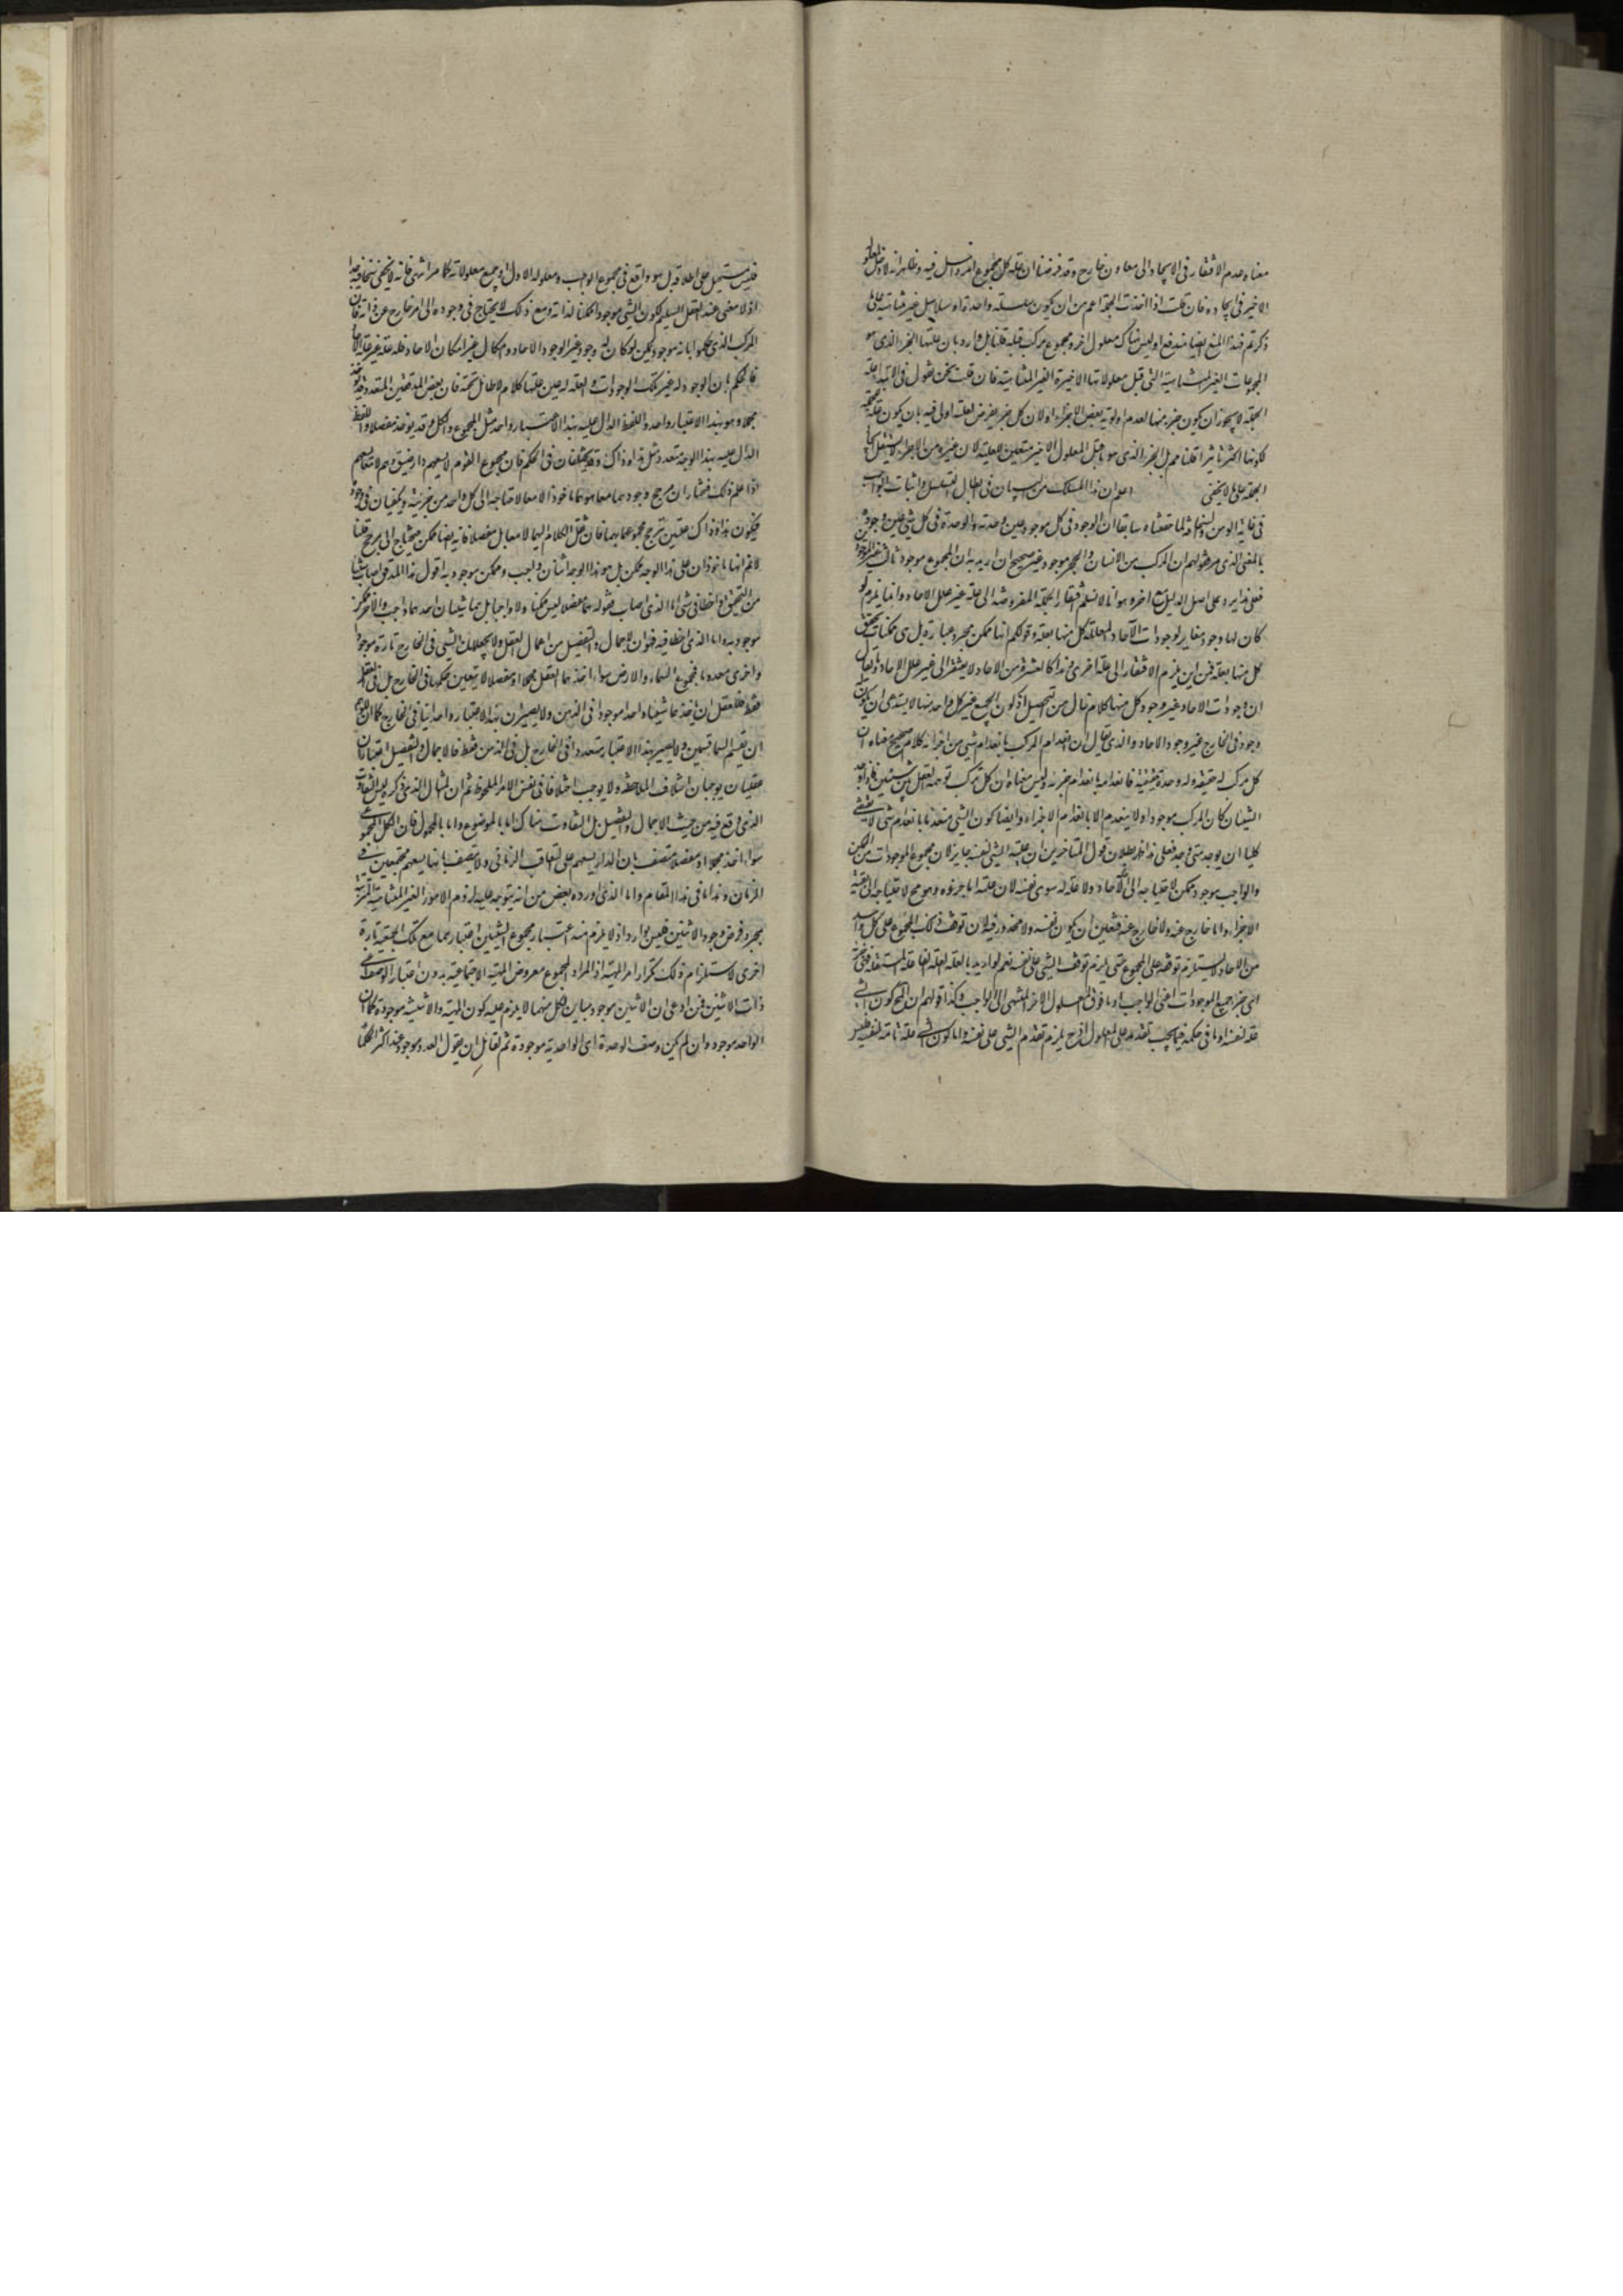 معناه عدم الافتقار فى الايجاد الى معاون خارج وقد فرضنا ان علة كل مجموع امر داخل فيه وظاهر انه لا دخل لمعلوله
الاخير فى ايجاده فان قلت اذا اخذت الجملة اعم من ان يكون سلسلة واحدة او سلاسل غير متناهية على ما
ذكرتم فهذا المنع ايضا مندفع اذ ليس هناك معلول اخر ومجموع مركب قبله قلنا بل وارد بان علتها الجزء الذى هو
المجموعات الغير المتناهية التى قبل معلولاتها الاخيرة الغير المتناهية فان قلت نحن نقول فى الابتداء علة
الجملة لا يجوز ان يكون جزء منها لعدم اولوية بعض الاجزاء او لان كل جزء يفرض فعلته اولى فيه بان يكون علة للجملة
لكونها اكثر تاثيرا قلنا ممم بل الجزء الذى هو ما قبل المعلول الاخير متعين للعلية لان غيره من الاجزاء لا يستقل بايجاد
الجملة على ما لا يخفى اعلم ان هذا المسلك من البيان فى ابطال التسلسل واثبات الواجب
فى غاية الوهن والسخافة لما حققناه سابقا ان الوجود فى كل موجود عين وحدته والوحدة فى كل شىء عين وجوده
بالمعنى الذى مر فقولهم ان المركب من الانسان والحجر موجود غير صحيح ان اريد به ان المجموع موجود ثالث غير الموجودين
فعلى هذا يرد على اصل الدليل منع اخر وهو انا لا نسلم افتقار الجملة المفروضة الى علة غير علل الاحاد وانما يلزم لو
كان لها وجود مغاير لوجودات الآحاد المعللة كل منها بعلة وقولكم انها ممكن مجرد عبارة بل هى ممكنات تحقق
كل منها بعلة فمن اين يلزم الافتقار الى علة اخرى وهذا كالعشرة من الاحاد لا يفتقر الى غير علل الاحاد وما يقال
ان وجودات الاحاد غير وجود كل منها كلام خال من التحصيل اذ كون الجميع غير كل واحد منها لا يستدعى ان يكون له
وجود فى الخارج غير وجود الاحاد والذى يقال ان انعدام المركب بانعدام شىء من اجزائه كلام صحيح معناه ان
كل مركب له حقيقة وله وحدة حقيقية فانعدامه بانعدام جزئه وليس معناه ان كل مركب توهمه العقل من شيئين فاذا وجد
الشيئان كان المركب موجودا ولا ينعدم الا بانعدام الاجزاء وايضا كون الشىء منعدما بانعدام شىء لا يقتضى
كليا ان يوجد متى وجد فعلى هذا ظهر بطلان قول المتاخرين ان علية الشىء لنفسه جايز لان مجموع الموجودات من الممكن
والواجب موجود ممكن لاحتياجه الى الآحاد ولا علة له سوى نفسه لان علته اما جزؤه وهو مح لاحتياجه الى بقية
الاجزاء واما خارج عنه ولا خارج عنه فتعين ان يكون نفسه ولا محذور فيه لان توقف ذلك المجموع على كل واحد
من الاحاد لا يستلزم توقفه على المجموع حتى يلزم توقف الشىء على نفسه نعم لو اريد بالعلة العلة الفاعلة المستقلة فهى جزئه
اى جزء جميع الموجودات اعنى الواجب او ما فوق المعلول الاخر المنتهى الى الواجب وكذا قولهم ان المح كون الشىء
علة لنفسه او ما فى حكمه فيما يجب تقدمه على المعلول اذ ح يلزم تقدم الشىء على نفسه واما كون الشىء علة تامة لنفسه فليس
فليس مستحيل على اطلاقه بل هو واقع فى مجموع الواجب ومعلوله الاول او جميع معلولاته كما مر انتهى فانه لا يخفى سخافته جدا
اذ لا معنى عند العقل السليم لكون الشىء موجودا ممكنا لذاته ومع ذلك لا يحتاج فى وجوده الى امر خارج عن ذاته فان
المركب الذى حكموا بانه موجود ممكن لو كان له وجود غير الوجود الاحاد وامكان غير امكان الاحاد فله علة غير علة الاحاد
فالحكم بان الوجود له غير تلك الوجودات والعلة له عين علتها كلام لا طائل تحته فان بعض المدققين المتعدد قد يؤخذ
مجملا وهو بهذا الاعتبار واحد واللفظ الدال عليه بهذا الاعتبار واحد مثل المجموع والكل وقد يؤخذ مفصلا واللفظ
الدال عليه بهذا الوجه متعدد مثل هذا وذاك وقد يختلفان فى الحكم فان مجموع القوم لا يسعهم دار ضيق وهم لا معا يسعهم
اذا علم ذلك فنختار ان مرجح وجودهما معا هو هما ماخوذا لا معا لاحتياجه الى كل واحد من جزئيه ويكفيان فى وجوده
فيكون هذا وذاك علتين ترجح مجموعهما بهما فان نقل الكلام اليهما لا معا بل مفصلا فانه ايضا ممكن محتاج الى مرجح قلنا
لا نم انهما ماخوذان على هذا الوجه ممكن بل هو بهذا الوجه اثنان واجب وممكن موجود به اقول هذا المدقق اصاب شيئا
من التحقيق واخطا فى شىء اما الذى اصاب فقوله هما مفصلا ليس ممكنا ولا واجبا بل هما شيئان احدهما واجب والآخر ممكن
موجود به واما الذى اخطا فيه فهو ان الاجمال والتفصيل من اعمال العقل ولا يجعلان الشىء فى الخارج تارة موجودا
واخرى معدوما فمجموع السماء والارض سواء اخذهما العقل مجملا او مفصلا لا يتغير حكمهما فى الخارج بل فى العقل
فقط فللعقل ان ياخذهما شيئا واحدا موجودا فى الذهن ولا يصيران بهذا الاعتبار واحدا ثالثا فى الخارج كما ان للوهم
ان يقسم السماء قسمين ولا يصير بهذا الاعتبار متعددا فى الخارج بل فى الذهن فقط فالاجمال والتفصيل اعتباران
عقليان يوجبان اختلاف الملاحظة ولا يوجب اختلافا فى نفس الامر الملحوظ ثم ان المثال الذى ذكره ليس التفاوت
الذى وقع فيه من حيث الاجمال والتفصيل بل التفاوت هناك اما بالموضوع واما بالمحمول فان الكل المجموعى
سواء اخذ مجملا او مفصلا متصف بان الدار يسعهم على التعاقب الزمانى ولا يتصف بانها يسعهم مجتمعين فى
الزمان وهذا ما فى هذا المقام واما الذى اورده بعض من انه يتوجه عليه لزوم الامور الغير المتناهية المترتبة
بمجرد فرض وجود الاثنين فليس بوارد اذ لا يلزم منه اعتبار مجموع الشيئين اعتبارهما مع تلك الجمعية تارة
اخرى لاستلزام ذلك تكرار امر الهيئة اذ المراد المجموع معروض الهيئة الاجتماعية بدون اعتبار الوصف اعنى
ذات الاثنين فمن ادعى ان الاثنين موجود مباين لكل منهما لا يلزم عليه كون الهيئة والاثنينية موجودة كما ان
الواحد موجود وان لم يكن وصف الوحدة اى الواحدية موجودة ثم لقائل ان يقول العدد موجود عند اكثر الحكماء